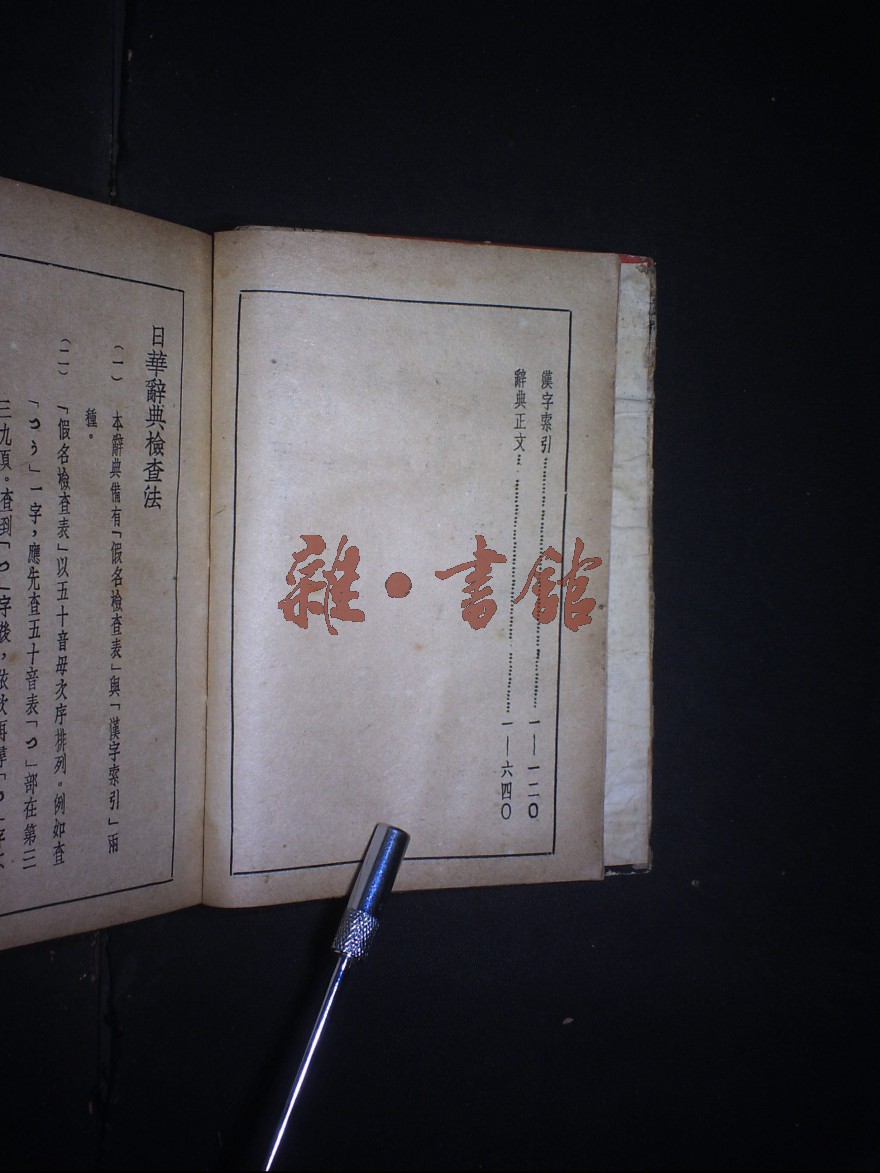 漢字索引……一—一二〇
辭典正文……一—六四〇
雜·書館
日華辭典檢查法
(一) 本辭典備有「假名檢查表」與「漢字索引」兩
種。
(二) 「假名檢查表」以五十音母次序排列。例如查
「つう」一字，應先查五十音表「つ」部在第三
三九頁。查到「つ」字後，依次再尋「う」字